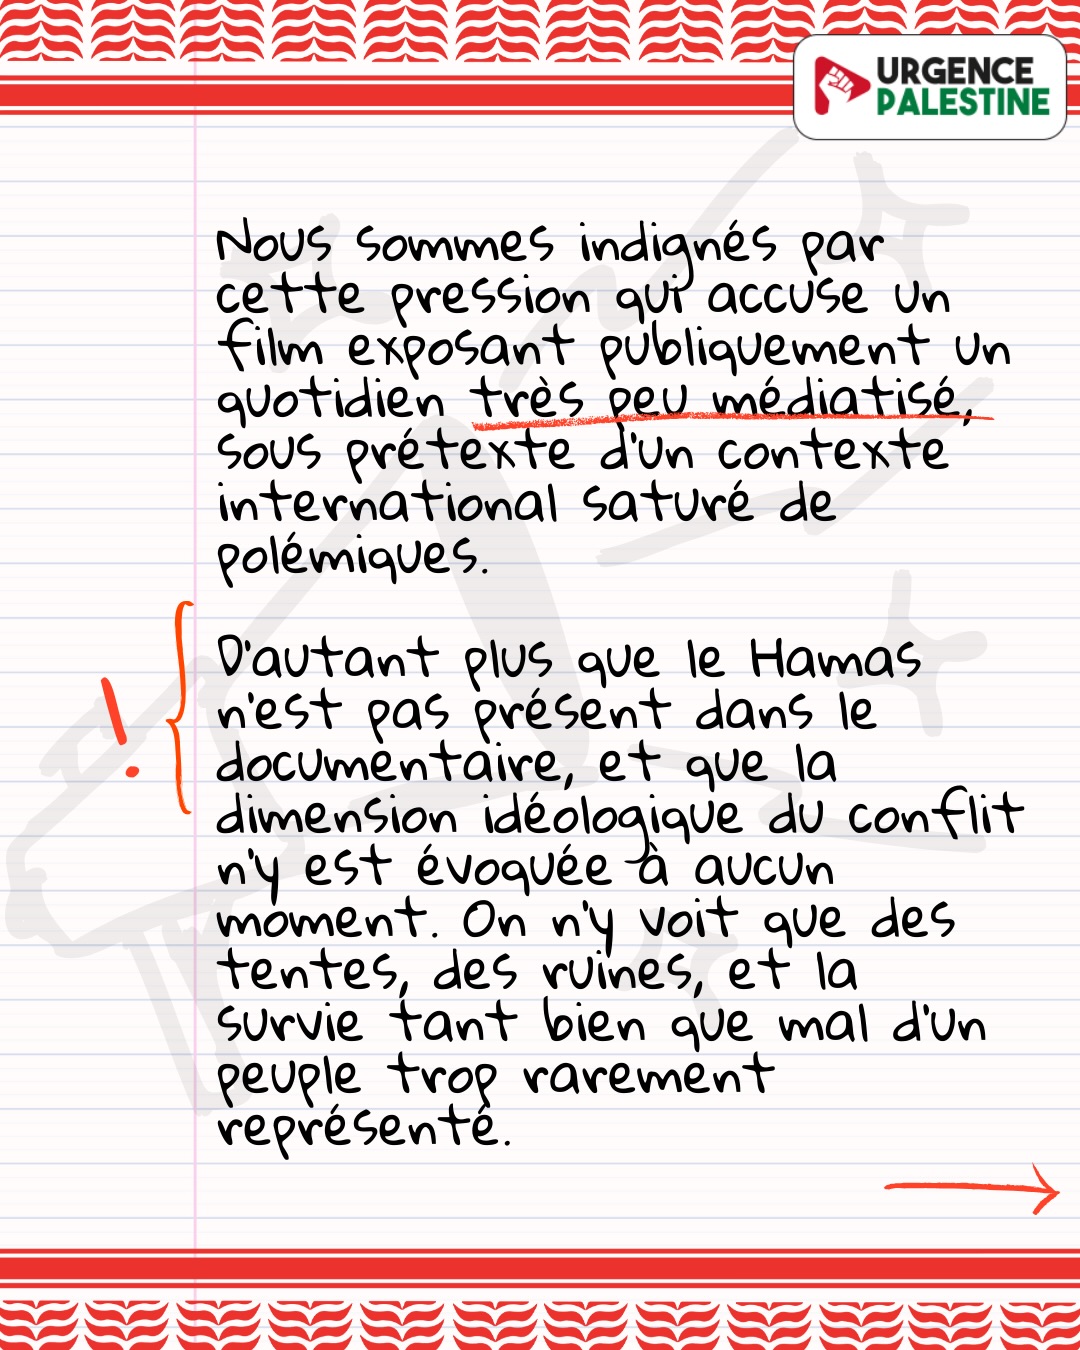 URGENCE
PALESTINE
Nous sommes indignés par
cette pression qui accuse un
film exposant publiquement un
quotidien très peu médiatisé,
sous prétexte d'un contexte
international saturé de
polémiques.
!
D'autant plus que le Hamas
n'est pas présent dans le
documentaire, et que la
dimension idéologique du conflit
n'y est évoquée à aucun
moment. On n'y voit que des
tentes, des ruines, et la
survie tant bien que mal d'un
peuple trop rarement
représenté.